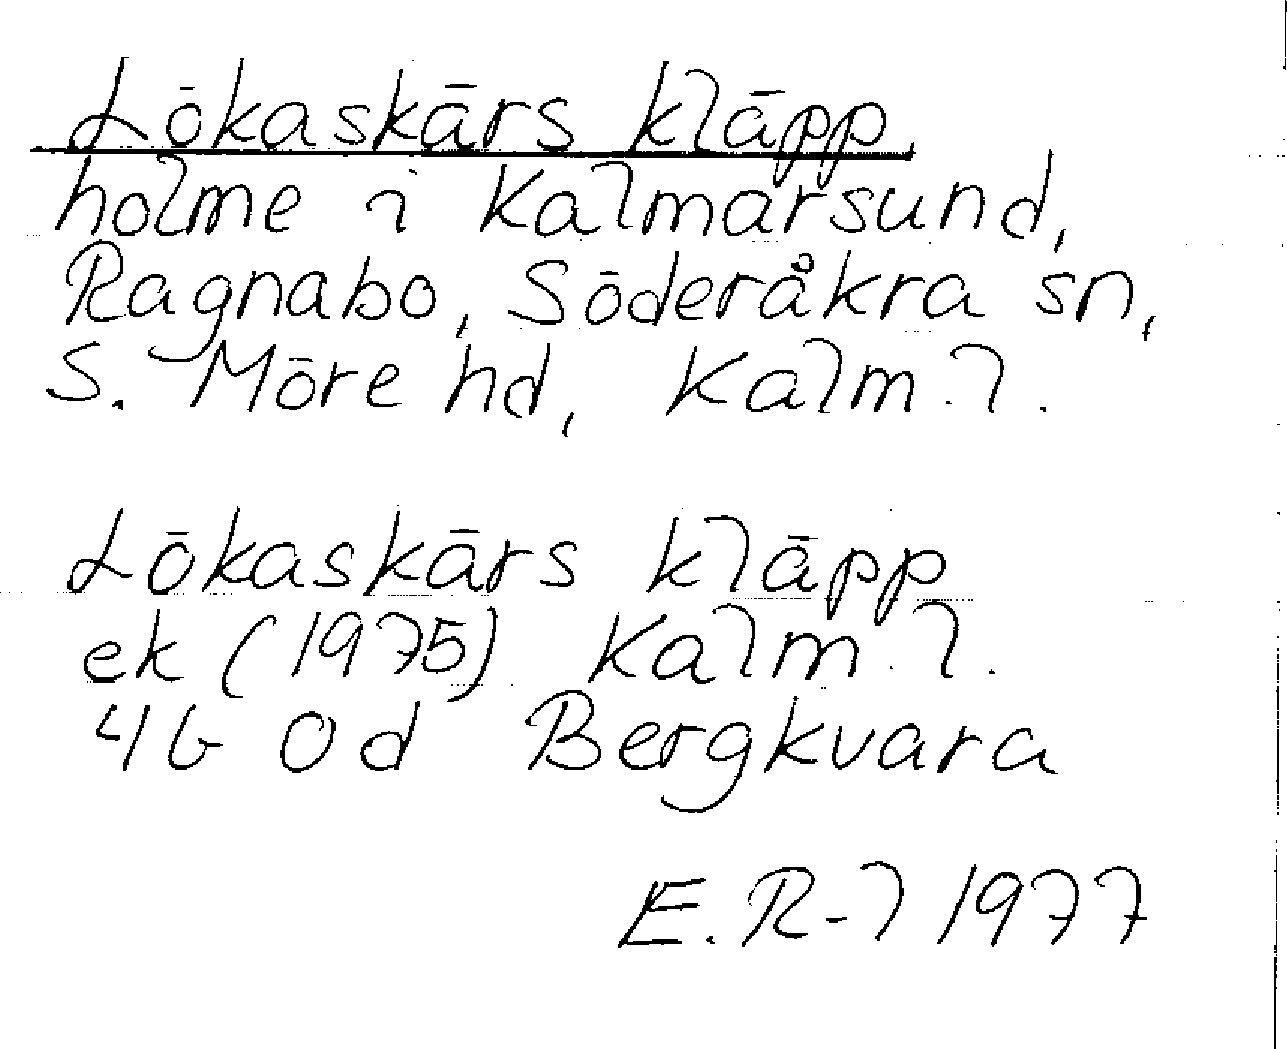 Lökaskärs kläpp
holme i Kalmarsund,
Ragnabo, Söderåkra sn,
S. Möre hd, Kalm. l.
Lökaskärs kläpp
ek (1975) Kalm. l.
4G 0d Bergkvara
E. R-l 1977